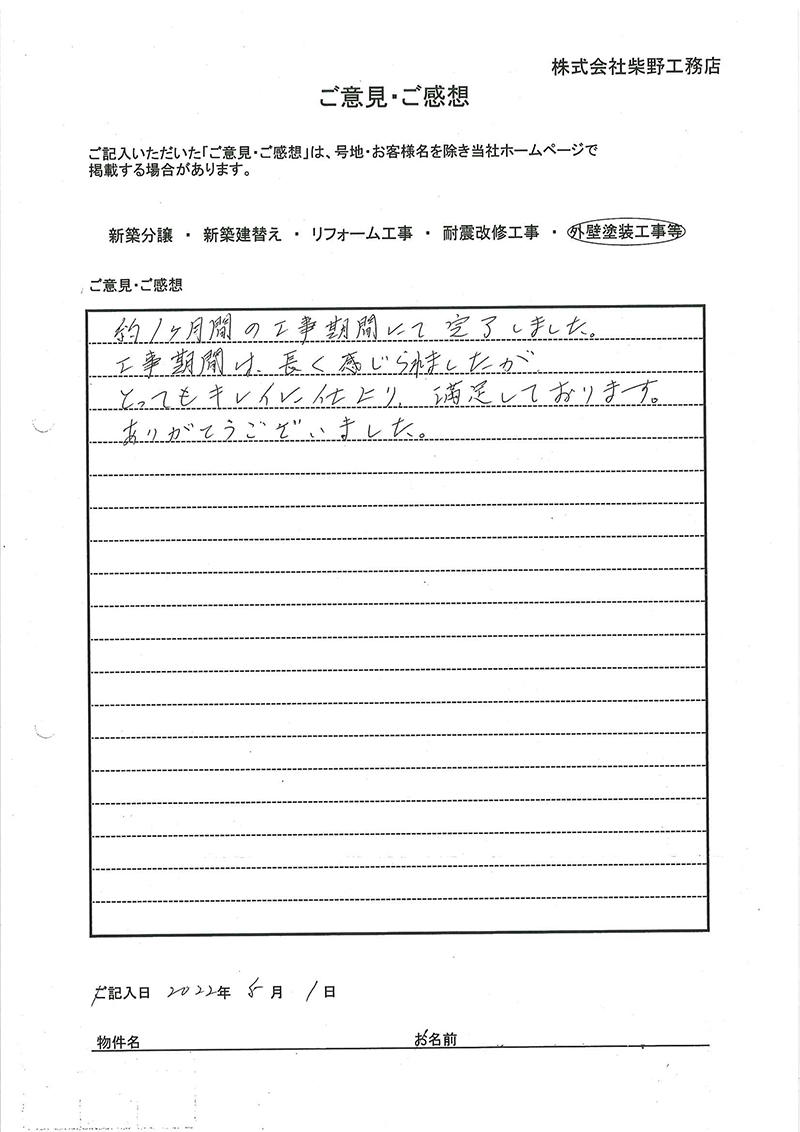 株式会社柴野工務店
ご意見・ご感想
ご記入いただいた「ご意見・ご感想」は、号地・お客様名を除き当社ホームページで
掲載する場合があります。
新築分譲 ・ 新築建替え ・ リフォーム工事 ・ 耐震改修工事 ・ 外壁塗装工事等
ご意見・ご感想
約1ヶ月間の工事期間にて完了しました。
工事期間は、長く感じられましたが
とってもキレイに仕上り、満足しております。
ありがとうございました。
ご記入日 2022年 5月 1日
物件名 お名前